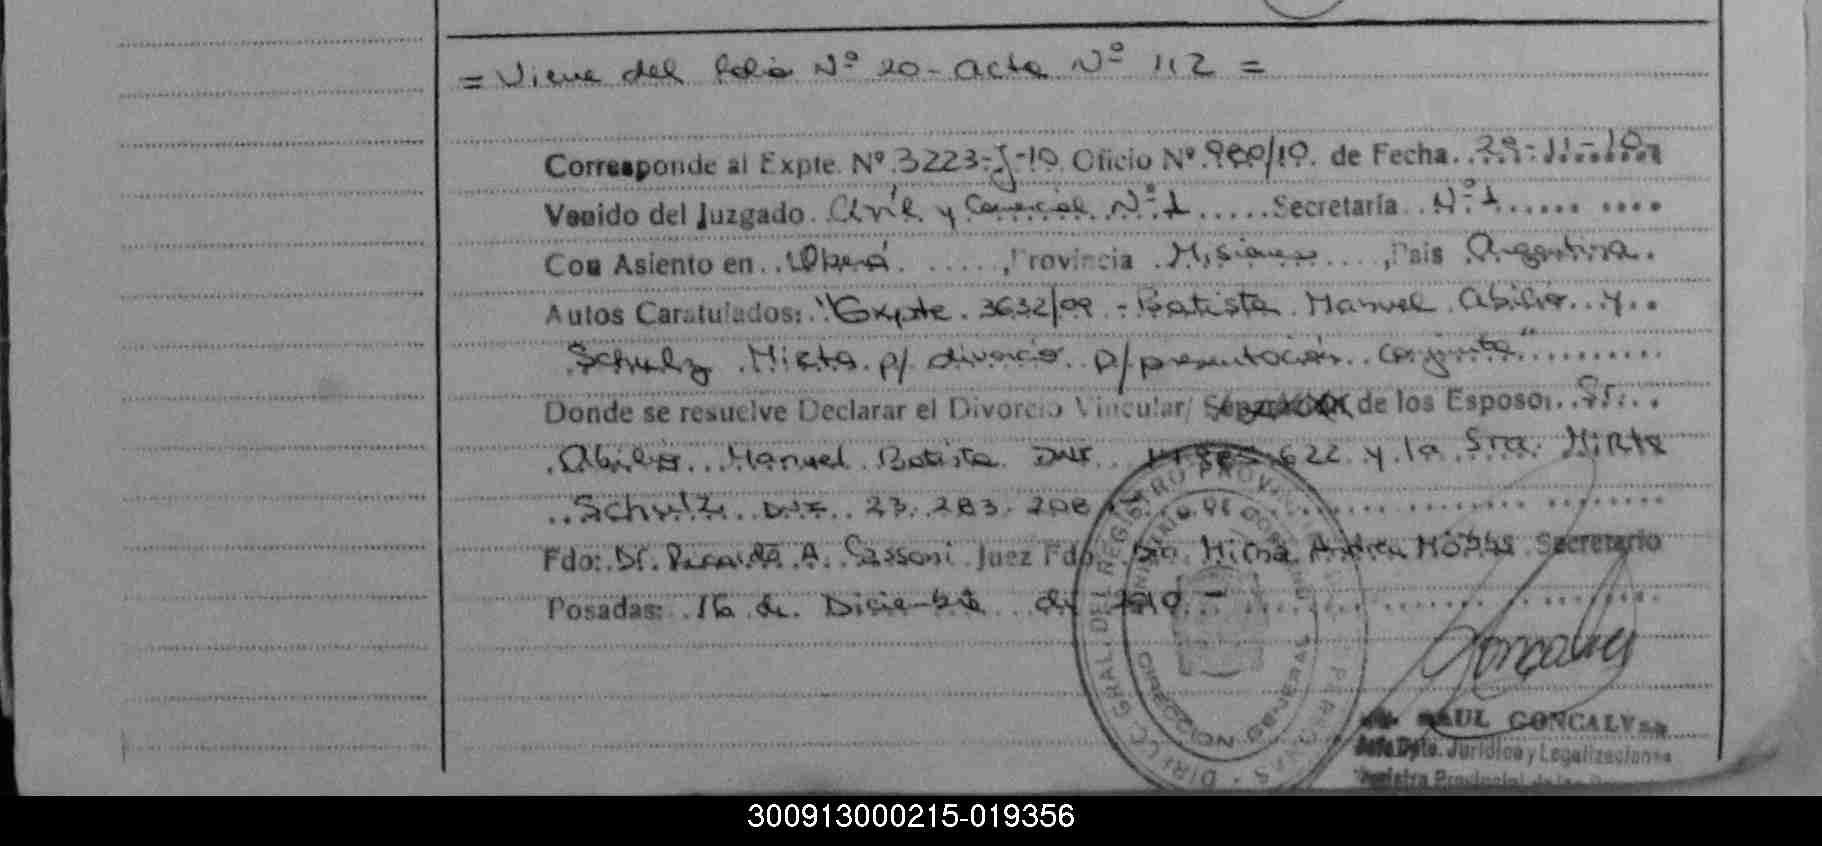 = Viene del folio Nº 20 - acta Nº 112 =
Corresponde al Expte. Nº 3223-J-10 Oficio Nº 980/10. de Fecha 29-11-10
Venido del Juzgado Civil y Comercial Nº 1 Secretaría Nº 1
Con Asiento en Oberá, Provincia Misiones, País Argentina
Autos Caratulados: "Expte. 3632/09 - Batista Manuel Abilio y
Schulz Mirta p/ divorcio p/ presentación conjunta"
Donde se resuelve Declarar el Divorcio Vincular/ de los Esposos Sr.
Abilio Manuel Batista DNI 622 y la Sra. Mirta
Schulz DNI 23.283.208
Fdo: Dr. A. Juez Fdo. Mirna Andrea Secretario
Posadas: 16 de Diciembre de 2010 -
RAUL GONCALVES
Jefe Dpto. Jurídica y Legalizaciones
Registro Provincial de las
DIRECC. GRAL. DEL REGISTRO PROVINCIAL DE LAS PERSONAS
MINISTERIO DE GOBIERNO
300913000215-019356